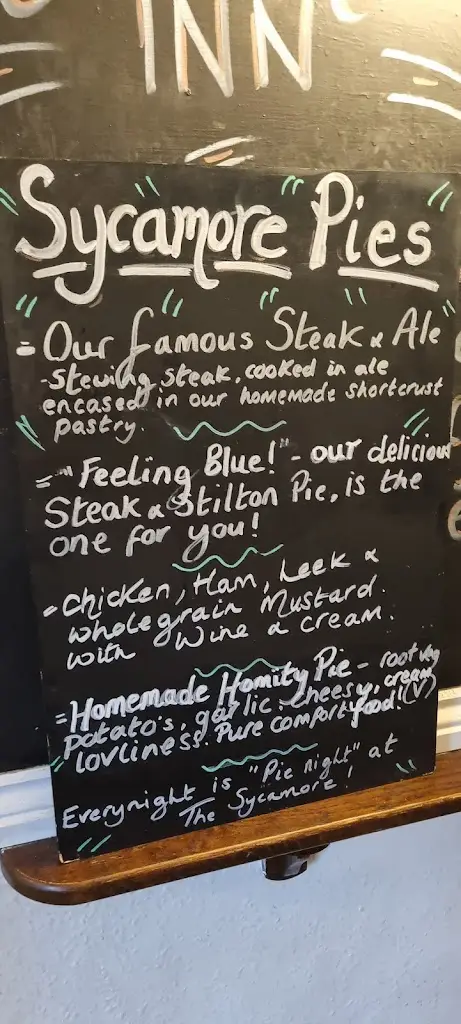 INN
Sycamore Pies
= Our famous Steak & Ale
- Stewing steak, cooked in ale
encased in our homemade shortcrust
pastry.
= "Feeling Blue!" - our delicious
Steak & Stilton Pie, is the
one for you!
= Chicken, Ham, Leek &
wholegrain Mustard.
with Wine & Cream.
= Homemade Homity Pie - root veg
potato's, garlic, cheesy, cream
lovliness. Pure comfort food! (V)
Everynight is "Pie night" at
The Sycamore!